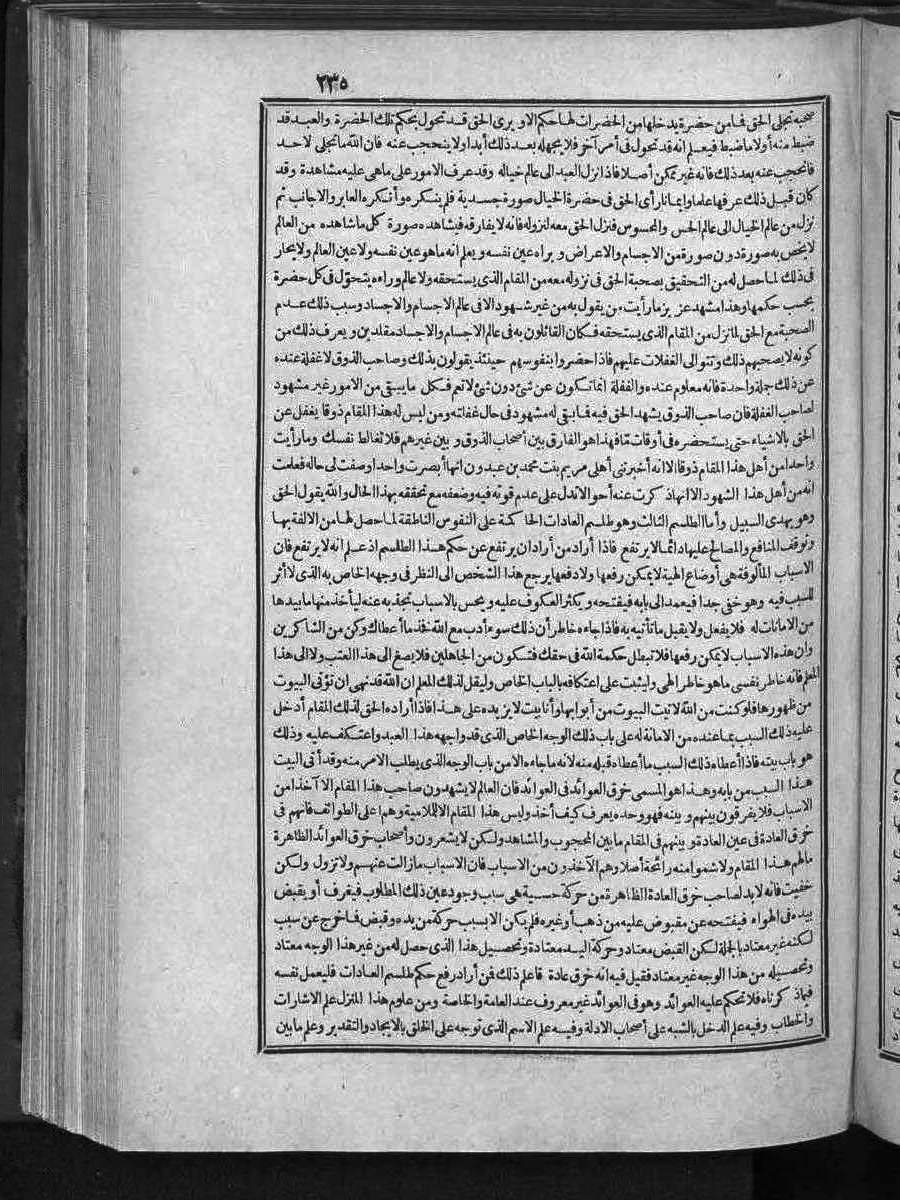 ٢٣٥
صحبة تجلى الحق فما من حضرة يدخلها من الحضرات لها حكم الا ويرى الحق قد تحول بحكم تلك الحضرة والعبد قد
ضبط منه أولا ما ضبط فيعلم انه قد تحول فى أمر آخر فلا يجهله بعد ذلك أبدا ولا ينحجب عنه فان الله ما تجلى لاحد
فانحجب عنه بعد ذلك فانه غير ممكن أصلا فاذا نزل العبد الى عالم خياله وقد عرف الامور على ماهى عليه مشاهدة وقد
كان قبل ذلك عرفها علما وايمانا رأى الحق فى حضرة الخيال صورة جسدية فلم ينكره وأنكره العابر والاجانب ثم
نزل من عالم الخيال الى عالم الحس والمحسوس فنزل الحق معه لنزوله فانه لا يفارقه فيشاهده صورة كل ما شاهده من العالم
لا يخص به صورة دون صورة من الاجسام والاعراض ويراه عين نفسه ويعلم انه ماهو عين نفسه ولا عين العالم ولا يحار
فى ذلك لما حصل له من التحقيق بصحبة الحق فى نزوله معه من المقام الذى يستحقه ولا عالم وراءه يتحوّل فى كل حضرة
بحسب حكمها وهذا مشهد عزيز ما رأيت من يقول به من غير شهود الا فى عالم الاجسام والاجساد وسبب ذلك عدم
الصحبة مع الحق لما نزل من المقام الذى يستحقه فكان القائلون به فى عالم الاجسام والاجساد مقلدين ويعرف ذلك من
كونه لا يصحبهم ذلك وتتوالى الغفلات عليهم فاذا حضروا بنفوسهم حينئذ يقولون بذلك وصاحب الذوق لا غفلة عنده
عن ذلك جملة واحدة فانه معلوم عنده والغفلة انما تكون عن شئ دون شئ لا تعم فكل ما يبقى من الامور غير مشهود
لصاحب الغفلة فان صاحب الذوق يشهد الحق فيه فما بقى له مشهود فى حال غفلته ومن ليس له هذا المقام ذوقا يغفل عن
الحق بالاشياء حتى يستحضره فى أوقات مّا فهذا هو الفارق بين أصحاب الذوق وبين غيرهم فلا تغالط نفسك وما رأيت
واحدا من أهل هذا المقام ذوقا الا انه أخبرتنى أهلى مريم بنت محمد بن عبدون انها أبصرت واحدا وصفت لى حاله فعلمت
انه من أهل هذا الشهود الا انها ذكرت عنه أحوالا تدل على عدم قوته فيه وضعفه مع تحققه بهذا الحال والله يقول الحق
وهو يهدى السبيل وأما الطلسم الثالث وهو طلسم العادات الحاكمة على النفوس الناطقة لما حصل لها من الالفة بها
وتوقف المنافع والمصالح عليها دائما لا يرتفع فاذا أراد من أراد ان يرتفع عن حكم هذا الطلسم اذ علم انه لا يرتفع فان
الاسباب المألوفة هى أوضاع الهية لا يمكن رفعها ولا دفعها يرجع هذا الشخص الى النظر فى وجهه الخاص به الذى لا أثر
للسبب فيه وهو خفى جدا فيعمد الى بابه فيفتحه ويكثر العكوف عليه ويحس بالاسباب تجذبه عنه ليأخذ منها ما بيدها
من الامانات له فلا يفعل ولا يقبل ما تأتيه به فاذا جاءه خاطر أن ذلك سوء أدب مع الله خذ ما أعطاك وكن من الشاكرين
وان هذه الاسباب لا يمكن رفعها فلا تبطل حكمة الله فى حقك فتكون من الجاهلين فلا يصغ الى هذا العتب ولا الى هذا
المعلم فانه خاطر نفسى ما هو خاطر الهى وليثبت على اعتكافه بالباب الخاص وليقل لذلك المعلم ان الله قد نهى ان تؤتى البيوت
من ظهورها فلو كنت من الله لاتيت البيوت من أبوابها وأنا بيت لا يزيده على هذا فاذا أراده الحق لذلك المقام أدخل
عليه ذلك السبب بما عنده من الامانة له على باب ذلك الوجه الخاص الذى قد واجهه هذا العبد واعتكف عليه وذلك
هو باب بيته فاذا أعطاه ذلك السبب ما أعطاه قبله منه لانه ما جاءه الا من باب الوجه الذى يطلب الامر منه وقد أتى البيت
هذا السبب من بابه وهذا هو المسمى خرق العوائد فى العوائد فان العالم لا يشهدون صاحب هذا المقام الا آخذا من
الاسباب فلا يفرقون بينهم وبينه فهو وحده يعرف كيف أخذ وليس هذا المقام الا للملامية وهم اعلى الطوائف فانهم فى
خرق العادة فى عين العادة وبينهم فى المقام ما بين المحجوب والمشاهد ولكن لا يشعرون وأصحاب خرق العوائد الظاهرة
مالهم هذا المقام ولا شموا منه رائحة أصلا وهم الآخذون من الاسباب فان الاسباب ما زالت عنهم ولا تزول ولكن
خفيت فانه لا بد لصاحب خرق العادة الظاهرة من حركة حسية هى سبب وجود عين ذلك المطلوب فيغرف أو يقبض
بيده فى الهواء فيفتحه عن مقبوض عليه من ذهب أو غيره فلم يكن الا بسبب حركة من يده وقبض فما خرج عن سبب
لكنه غير معتاد بالجملة لكن القبض معتاد وحركة اليد معتادة وتحصيل هذا الذى حصل له من غير هذا الوجه معتاد
وتحصيله من هذا الوجه غير معتاد فقيل فيه انه خرق عادة فاعلم ذلك فمن أراد رفع حكم طلسم العادات فليعمل نفسه
فيما ذكرناه فلا تحكم عليه العوائد وهو فى العوائد غير معروف عند العامة والخاصة ومن علوم هذا المنزل علم الاشارات
والخطاب وفيه علم الدخل بالشبه على أصحاب الادلة وفيه علم الاسم الذى توجه على الخلق بالايجاد والتقدير وعلم ما بين